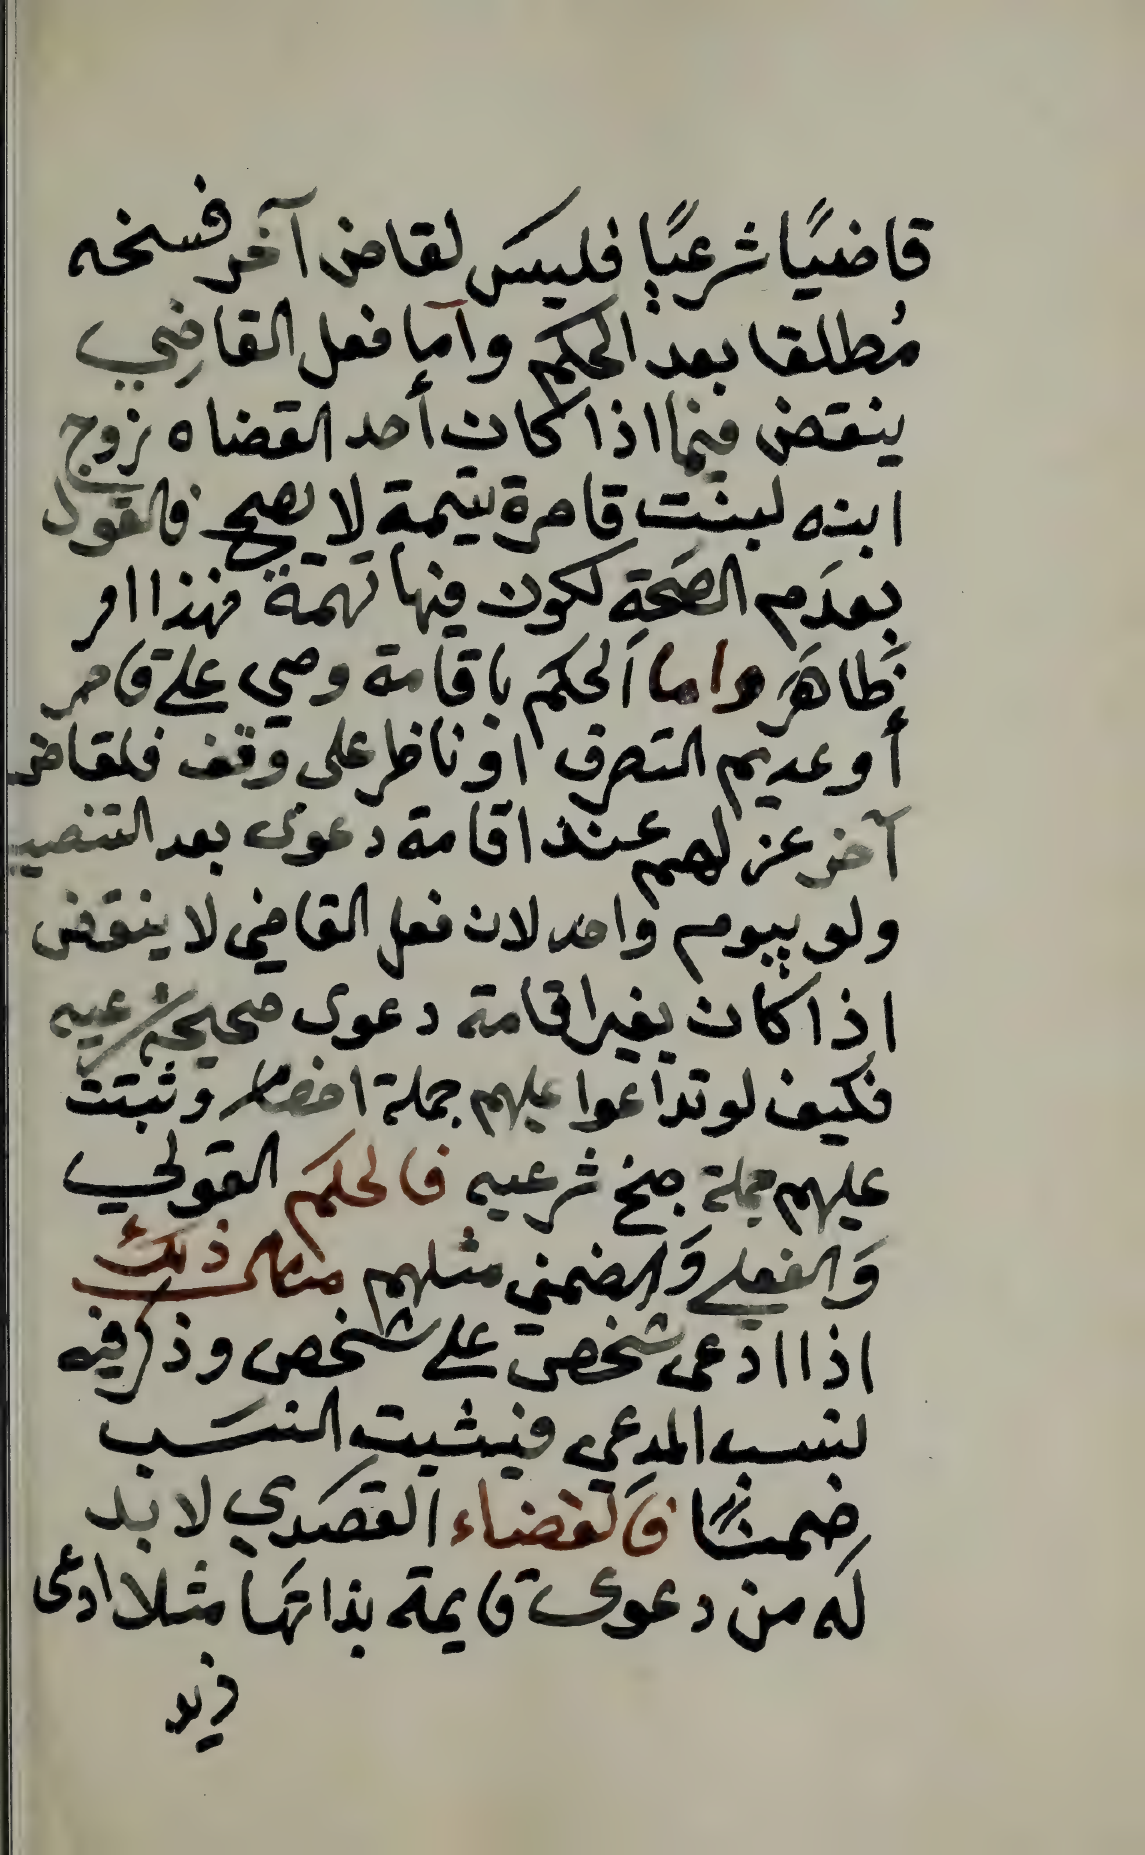 قاضيًا شرعيًا فليس لقاض آخر فسخه
مُطلقا بعد الحكم وآما فعل القاضِي
ينقض فيما اذا كان أحد القضاه زوج
ابنه لبنت قاصرة يتيمة لا يصح فالقول
بعدَم الصَحة لكون فيها تهمة فهذا امر
ظاهَر واما الحكم باقامة وصي على قاصر
أو عديم التصرف او ناظر على وقف فلقاض
آخر عزلهم عند اقامة دعوى بعد التنصيب
ولو بيوم واحد لان فعل القاضي لا ينقض
اذا كان بغير اقامة دعوى صحيحة شرعيه
فكيف لو تداعوا عليهم جملة اخصام وثبتت
عليهم جملة جنح شرعيه فالحكم القولي
وَالفعلي وَالضمني مثلهم مثال ذلك
اذا ادعى شخص على شخص وذكر فيه
نسب المدعي فيثبت النسَب
ضمنًا فَالقضاء القصَدي لا بد
لَه من دعوى قايمة بذاتهَا مثلا ادعى
زيد